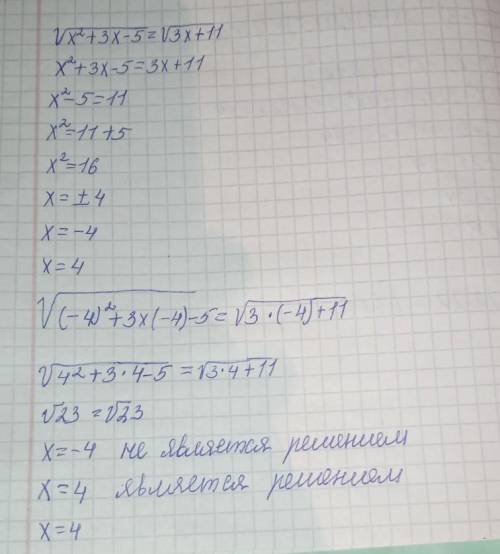 √x²+3x-5=√3x+11
x²+3x-5=3x+11
x²-5=11
x²=11+5
x²=16
x=±4
x=-4
x=4
√(-4)²+3x(-4)-5=√3·(-4)+11
√4²+3·4-5=√3·4+11
√23=√23
x=-4 не является решением
x=4 является решением
x=4